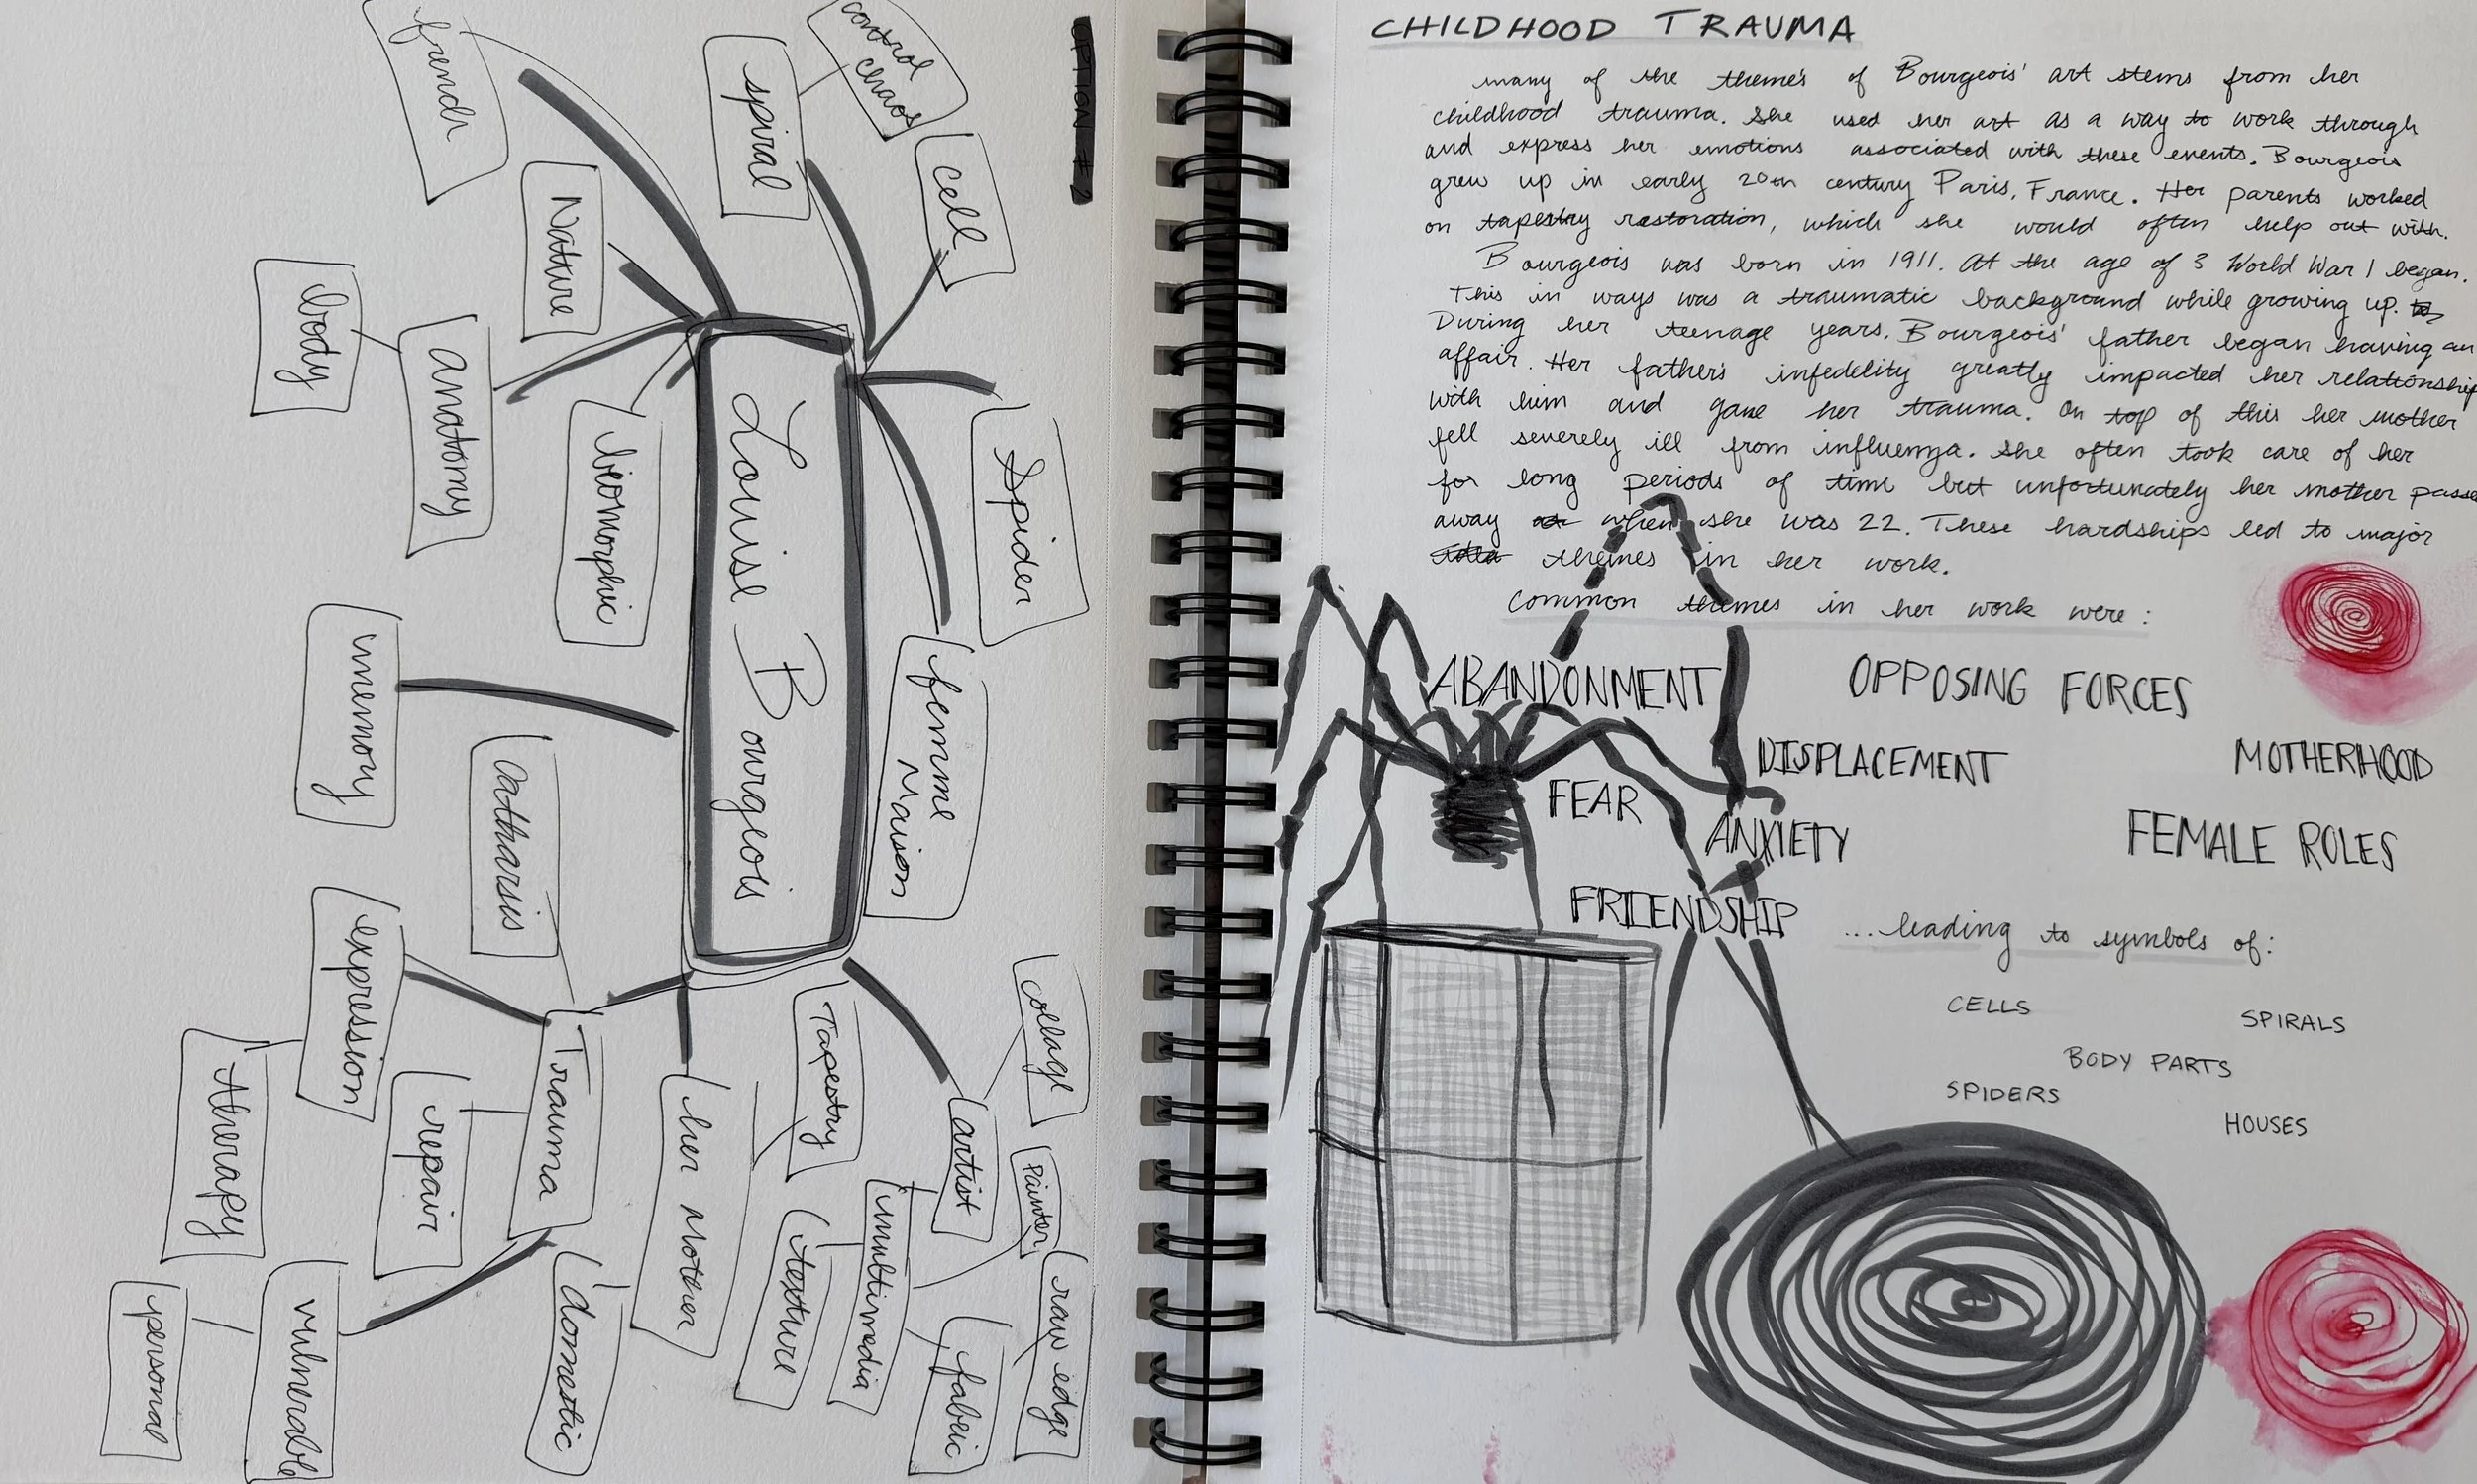 OPTION #2
control chaos
cell
spiral
french
Nature
body
anatomy
biomorphic
Spider
Louise Bourgeois
femme Maison
memory
Catharsis
expression
therapy
repair
Trauma
her Mother
Tapestry
collage
artist
painter
multimedia
texture
raw edge
fabric
domestic
vulnerable
personal
CHILDHOOD TRAUMA
many of the theme's of Bourgeois' art stems from her
childhood trauma. She used her art as a way to work through
and express her emotions associated with these events. Bourgeois
grew up in early 20th century Paris, France. Her parents worked
on tapestry restoration, which she would often help out with.
Bourgeois was born in 1911. At the age of 3 World War 1 began.
This in ways was a traumatic background while growing up.
During her teenage years, Bourgeois' father began having an
affair. Her father's infedelity greatly impacted her relationship
with him and gave her trauma. On top of this her mother
fell severely ill from influenza. She often took care of her
for long periods of time but unfortunately her mother passe
away when she was 22. These hardships led to major
themes in her work.
Common themes in her work were:
ABANDONMENT
OPPOSING FORCES
DISPLACEMENT
MOTHERHOOD
FEAR
ANXIETY
FEMALE ROLES
FRIENDSHIP
...leading to symbols of:
CELLS
SPIRALS
BODY PARTS
SPIDERS
HOUSES